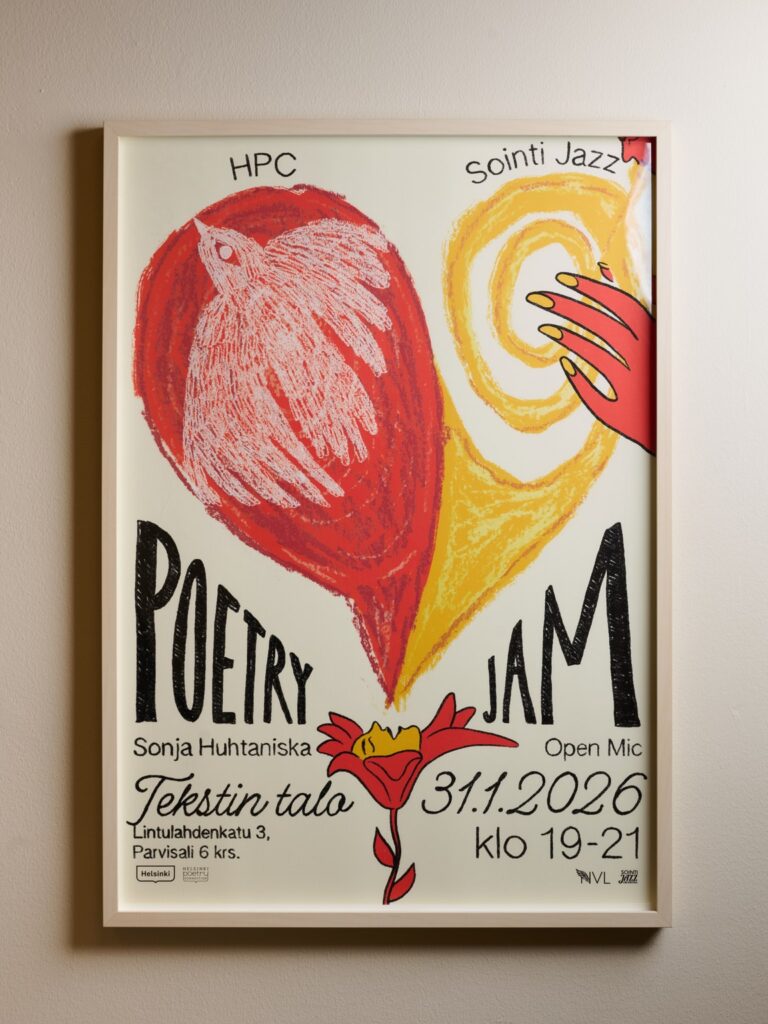 HPC
Sointi Jazz
POETRY JAM
Sonja Huhtaniska
Open Mic
Tekstin talo
31.1.2026
Lintulahdenkatu 3,
Parvisali 6 krs.
klo 19-21
Helsinki
HELSINKI
poetry
NVL
SOINTI
JAZZ